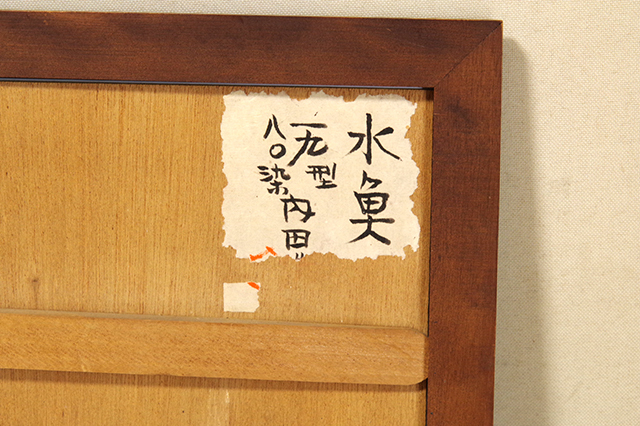 水𩵋
一九
八〇
型
染
内田